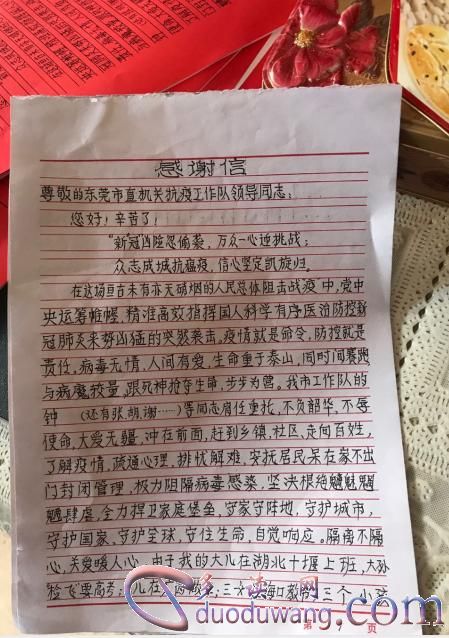 感谢信
尊敬的东莞市直机关抗疫工作队领导同志：
您好！辛苦了！
“新”冠凶险忽偷袭，万众一心迎挑战；
众志成城抗瘟疫，信心坚定凯旋归。
在这场亘古未有亦无硝烟的人民总体阻击战疫中，党中
央运筹帷幄，精准高效指挥国人科学有序医治防控新
冠肺炎来势凶猛的突袭袭击。疫情就是命令，防控就是
责任，病毒无情，人间有爱，生命重于泰山，同时间赛跑
与病魔较量，跟死神抢夺生命，步步为营。我市工作队的
钟（还有张、胡、谢……）等同志肩任重托，不负韶华，不辱
使命，大爱无疆，冲在前面，赶到乡镇、社区、走向百姓，
了解疫情，疏通心理，排忧解难，安抚居民呆在家不出
门封闭管理，极力阻隔病毒感染，坚决根绝魑魅魍
魉肆虐，全力捍卫家庭堡垒，守家守阵地，守护城市，
守护国家，守护全球，守住生命，自觉响应。隔离不隔
心，关爱暖人心。由于我的大儿在湖北十堰上班，大孙
三个小孩
多读网
duoduwang.com
第 页